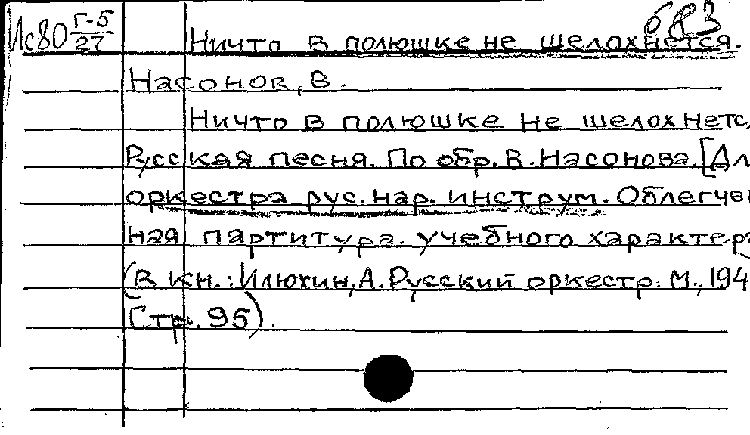 683
Ис80 Г-5/27 Ничто в полюшке не шелохнется.
Насонов, В.
Ничто в полюшке не шелохнетс
Русская песня. По обр. В. Насонова. [Дл
оркестра рус. нар. инструм. Облегчен
ная партитура учебного характер
(В кн.: Илюхин, А. Русский оркестр. М., 194
Стр. 95).